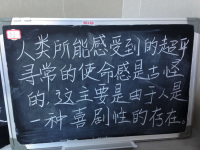 人类所能感受到的超乎
寻常的使命感是古怪
的.这主要是由于人是
一种喜剧性的存在。